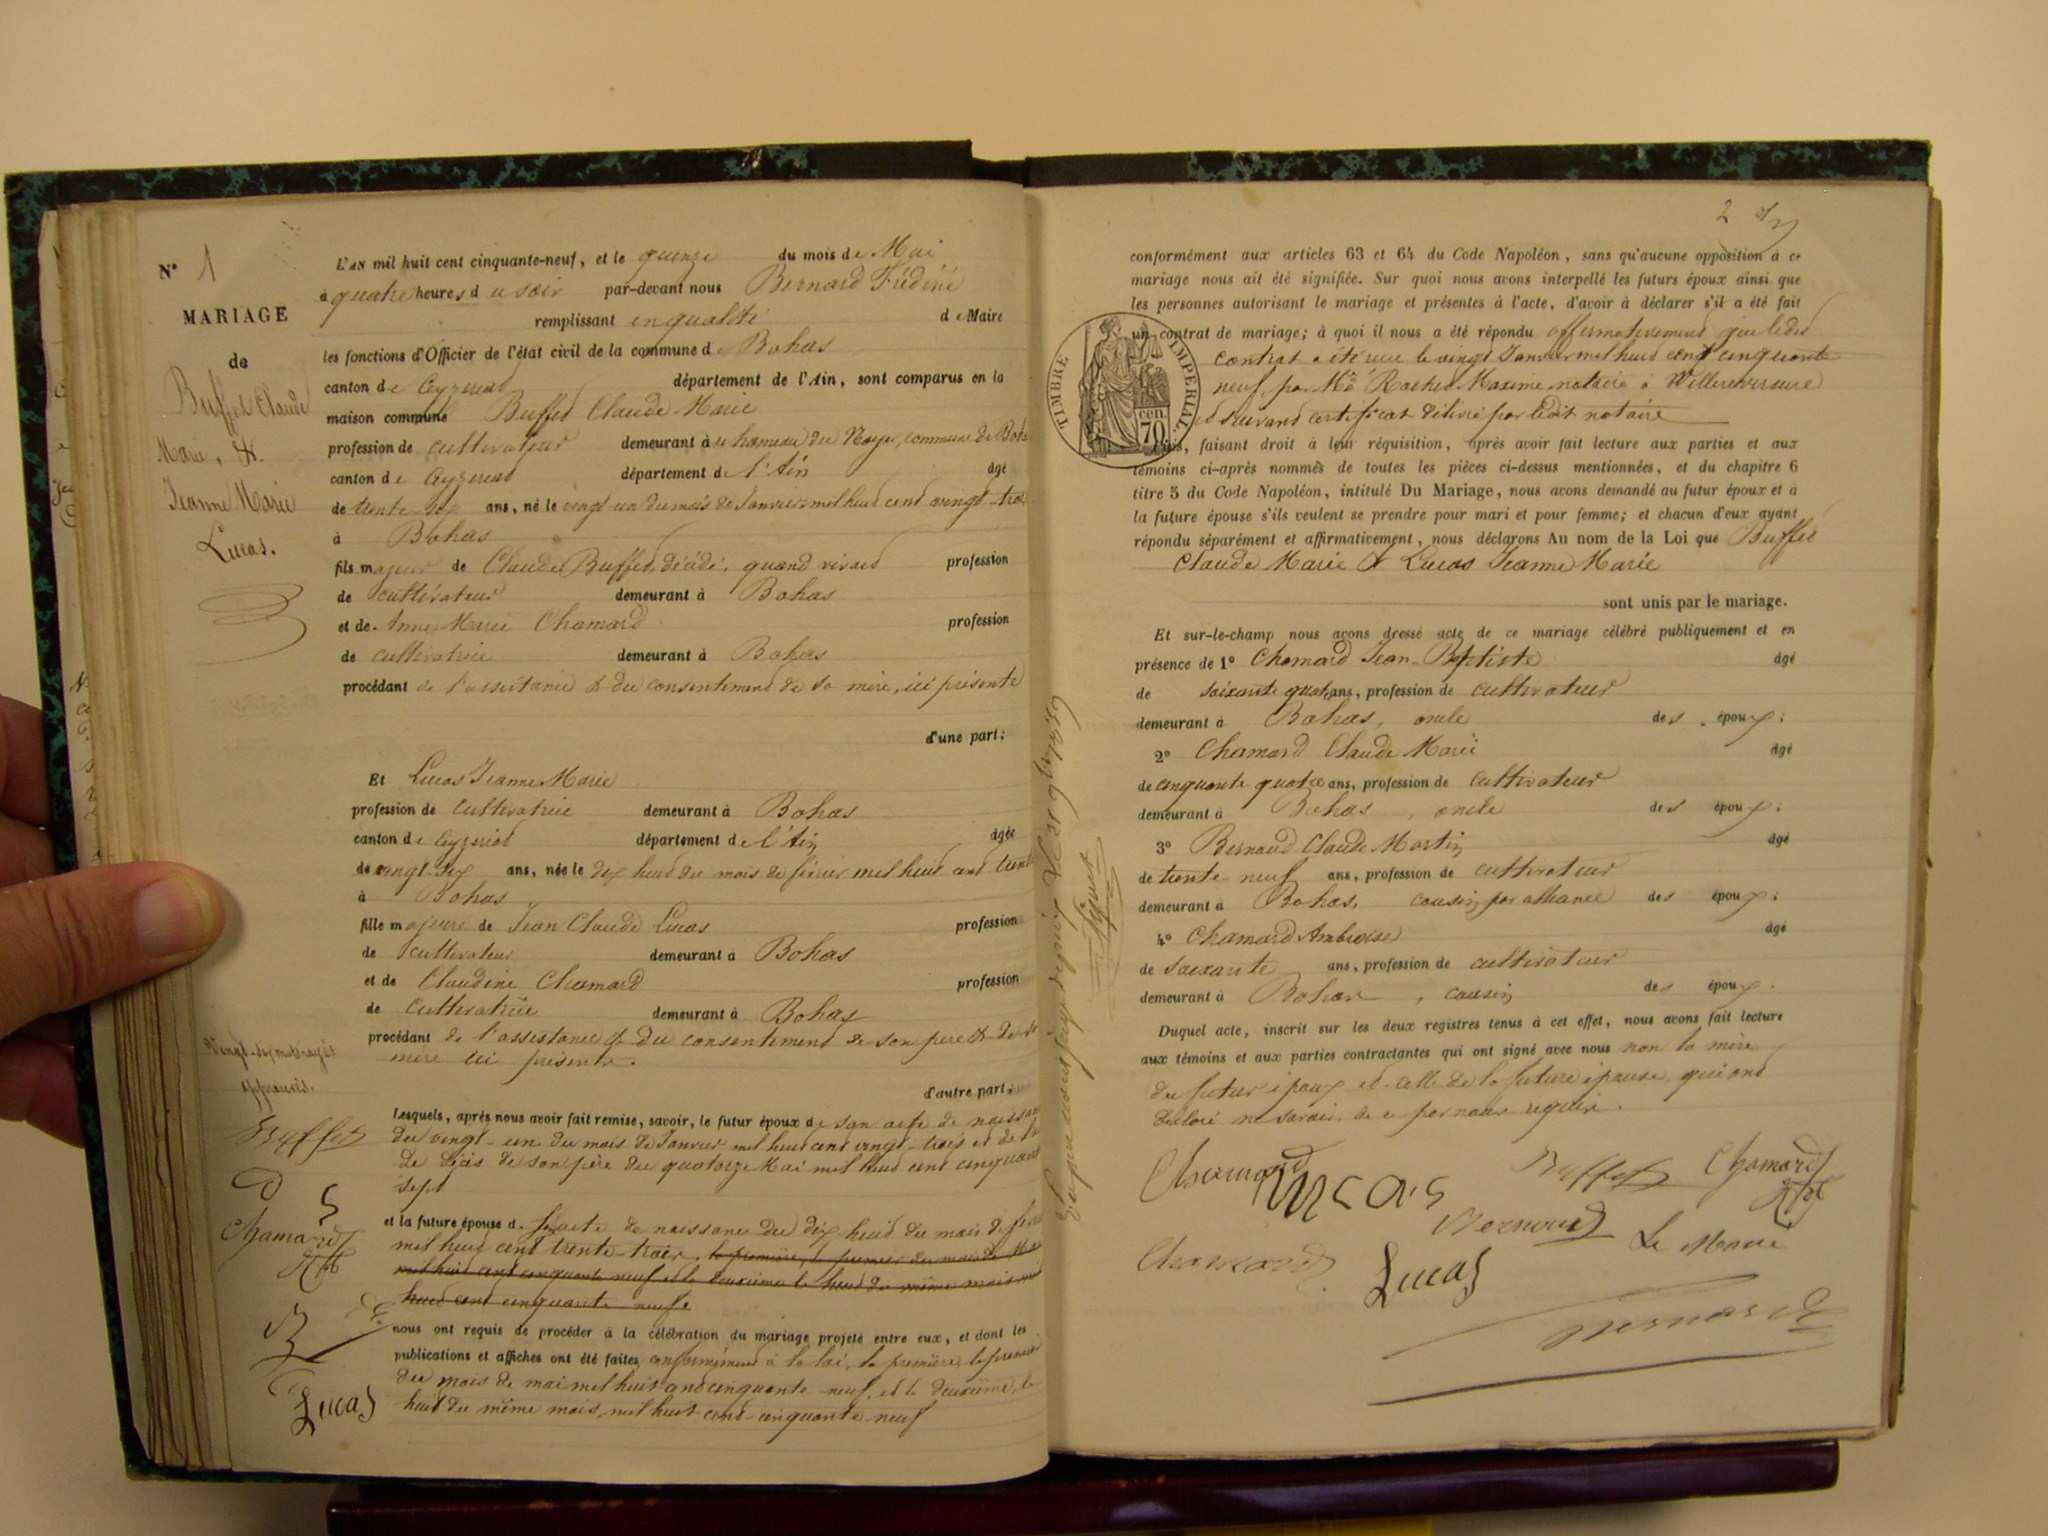 N° 1
MARIAGE
de
Buffet Claude
Marie, &
Jeanne Marie
Lucas.
L'AN mil huit cent cinquante-neuf, et le quinze du mois de Mai
à quatre heures du soir par-devant nous Bernard Frédéric
remplissant en qualité de Maire
les fonctions d'Officier de l'état civil de la commune de Bohas
canton de Ceyzeriat département de l'Ain, sont comparus en la
maison commune Buffet Claude Marie
profession de cultivateur demeurant à u hameau du Noyer, commune de Bohas
canton de Ceyzeriat département de l'Ain âgé
de trente six ans, né le vingt un du mois de Janvier mil huit cent vingt-trois
à Bohas
fils majeur de Claude Buffet, décédé, quand vivait profession
de cultivateur demeurant à Bohas
et de Anne Marie Chamard profession
de cultivatrice demeurant à Bohas
procédant de l'assistance & du consentement de sa mère, ici présente
d'une part;
Et Lucas Jeanne Marie
profession de cultivatrice demeurant à Bohas
canton de Ceyzeriat département de l'Ain âgée
de vingt-six ans, née le dix huit du mois de février mil huit cent trente
à Bohas
fille majeure de Jean Claude Lucas profession
de cultivateur demeurant à Bohas
et de Claudine Chamard profession
de cultivatrice demeurant à Bohas
procédant de l'assistance & du consentement de son père & de sa
mère ici présents.
d'autre part;
Vingt-six mots rayés
approuvés.
Buffet
Chamard
Lucas
Lesquels, après nous avoir fait remise, savoir, le futur époux de son acte de naissance
du vingt-un du mois de Janvier mil huit cent vingt-trois et de
de décès de son père du quatorze Mai mil huit cent cinquante
sept
et la future épouse d. acte de naissance du dix huit du mois de février
mil huit cent trente-trois, la première, le premier du mois de Mai
mil huit cent cinquante neuf et la deuxième le huit du même mois mil
huit cent cinquante neuf
nous ont requis de procéder à la célébration du mariage projeté entre eux, et dont les
publications et affiches ont été faites conformément à la loi, la première, le premier
du mois de mai mil huit cent cinquante-neuf, et la deuxième, le
huit du même mois, mil huit cent cinquante-neuf
2
conformément aux articles 63 et 64 du Code Napoléon, sans qu'aucune opposition à ce
mariage nous ait été signifiée. Sur quoi nous avons interpellé les futurs époux ainsi que
les personnes autorisant le mariage et présentes à l'acte, d'avoir à déclarer s'il a été fait
un contrat de mariage; à quoi il nous a été répondu affirmativement que ledit
contrat a été reçu le vingt Janvier mil huit cent cinquante
neuf, par Me Rochet Maxime notaire à Villereversure
suivant certificat délivré par ledit notaire
TIMBRE IMPERIAL
70 cen.
faisant droit à leur réquisition, après avoir fait lecture aux parties et aux
témoins ci-après nommés de toutes les pièces ci-dessus mentionnées, et du chapitre 6
titre 5 du Code Napoléon, intitulé Du Mariage, nous avons demandé au futur époux et à
la future épouse s'ils veulent se prendre pour mari et pour femme; et chacun d'eux ayant
répondu séparément et affirmativement, nous déclarons Au nom de la Loi que Buffet
Claude Marie & Lucas Jeanne Marie
sont unis par le mariage.
Et sur-le-champ nous avons dressé acte de ce mariage célébré publiquement et en
présence de 1° Chamard Jean-Baptiste âgé
de soixante quatre ans, profession de cultivateur
demeurant à Bohas, oncle des époux;
2° Chamard Claude Marie âgé
de cinquante quatre ans, profession de cultivateur
demeurant à Bohas, oncle des époux;
3° Bernard Claude Martin âgé
de trente-neuf ans, profession de cultivateur
demeurant à Bohas, cousin par alliance des époux;
4° Chamard Ambroise âgé
de soixante ans, profession de cultivateur
demeurant à Bohas, cousin des époux.
Duquel acte, inscrit sur les deux registres tenus à cet effet, nous avons fait lecture
aux témoins et aux parties contractantes qui ont signé avec nous non la mère
du futur époux et celle de la future épouse, qui ont
déclaré ne savoir, de ce par nous requis.
Chamard Lucas Buffet Chamard
Bernard Le Maire
Chamard Lucas
Bernard